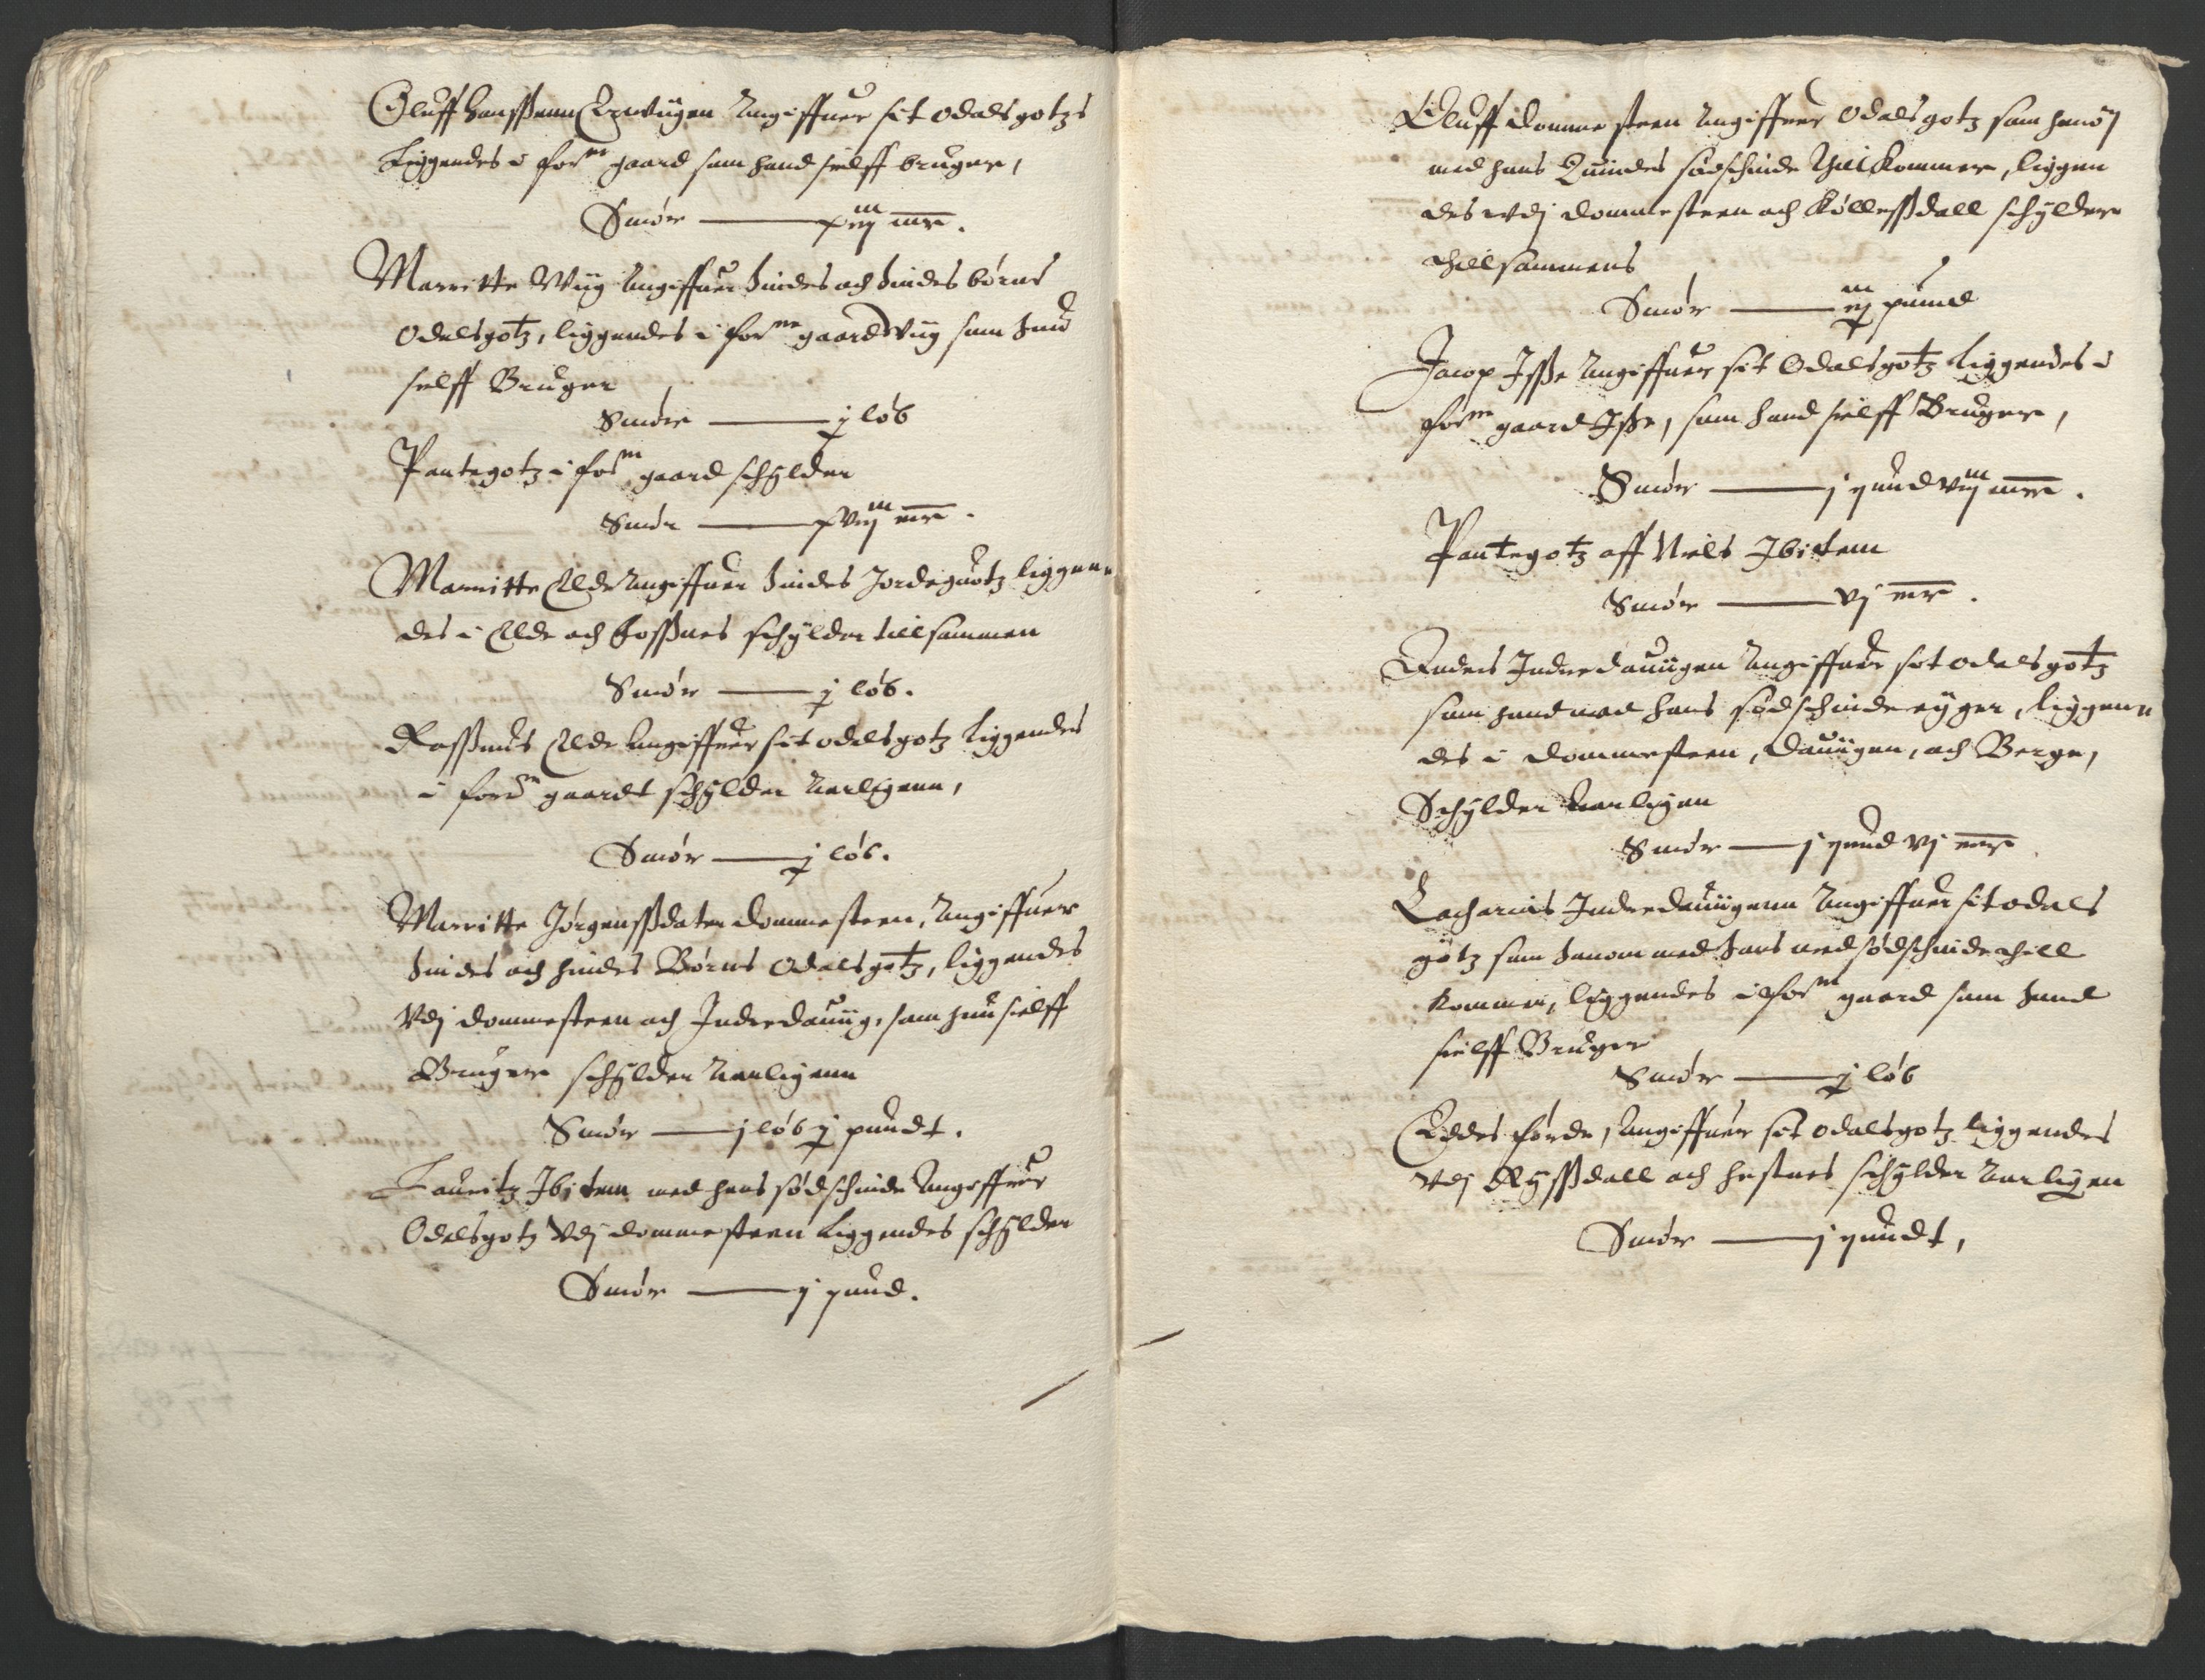 Oluff Hanssenn Erwiigen Angiffuer sit odalsgotzs
Liggendes i for^ne gaard som hand sielff bruger,
Smør — xiij mr.
Marritte Wiig Angiffuer hindes och hindes børns
Odelsgotz, liggendes i for^ne gaard Wiig som hun
sielff Bruger
Smør — j løb
Pantegotz i for^ne gaard schylder
Smør — xviij mr.
Marritte Elde Angiffuer hindes Jordeguotz liggenn
des i Elde och Fossnes schylder tillsammen
Smør — j løb.
Rassmus Elde Angiffuer sit odelsgotz liggendes
i for^ne gaardt schylder Aarligenn,
Smør — j løb.
Marritte Jørgenssdater Dommesteen, Angiffuer
hindes och hindes Børns Odelsgotz, liggendes
Vdj Dommesteen och Indredauiig, som hun sielff
Bruger schylder Aarligenn
Smør — j løb j pundt.
Lauritz Ibitem med hans sødschinde Angiffuer
Odelsgotz Vdj Dommesteen Liggendes schylder
Smør — j pund.
Oluff Dommesteen Angiffuer Odelsgotz som hanom
med hans Quindes sødschinde thilkommer, liggen
des vdj Dommesteen och Køllessdall schylder
thillsammens
Smør — ij pund
Jacop Isse Angiffuer sit Odalsgotz Liggendes i
for^ne gaard Isse, som hand sielff Bruger,
Smør — j pund viij mr.
Pantegotz aff Niels Ibitem
Smør — vj mr.
Anders Indredauiigen Angiffuer sit odelsgotz
som hand med hans sødschinde eyger, liggenn
des i Dommesteen, Dauiigen, och Berge,
Schylder Aarligen
Smør — j pund vj mr
Zacharias Indredauiigenn Angiffuer sit odels
gotz som hanom med hans medsødschinde thill
kommer, liggendes i for^ne gaard som hand
sielff Bruger
Smør — j løb
Eddes Førde, Angiffuer sit odelsgotz liggendes
vdj Ryssdall och Hestnes schylder Aarligen
Smør — j pundt,